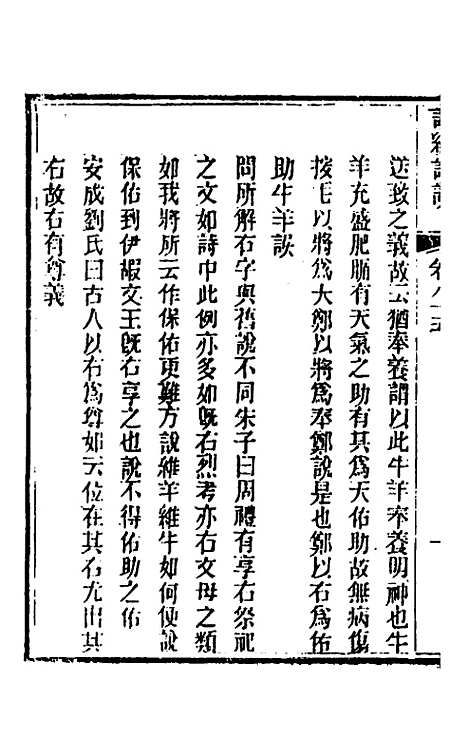 送致之義故云猶奉養謂以此牛羊奉養明神也牛
羊充盛肥腯有天氣之助有其爲天佑助故無病傷
按毛以將爲大鄭以將爲奉鄭說是也鄭以右爲佑
助牛羊誤
問所解右字與舊說不同朱子曰周禮有享右祭祀
之文如詩中此例亦多如旣右烈考亦右文母之類
如我將所云作保佑更難方說維羊維牛如何便說
保佑到伊嘏文王旣右享之也說不得佑助之佑
安成劉氏曰古人以右爲尊如云位在其右尤出其
右故右有尊義